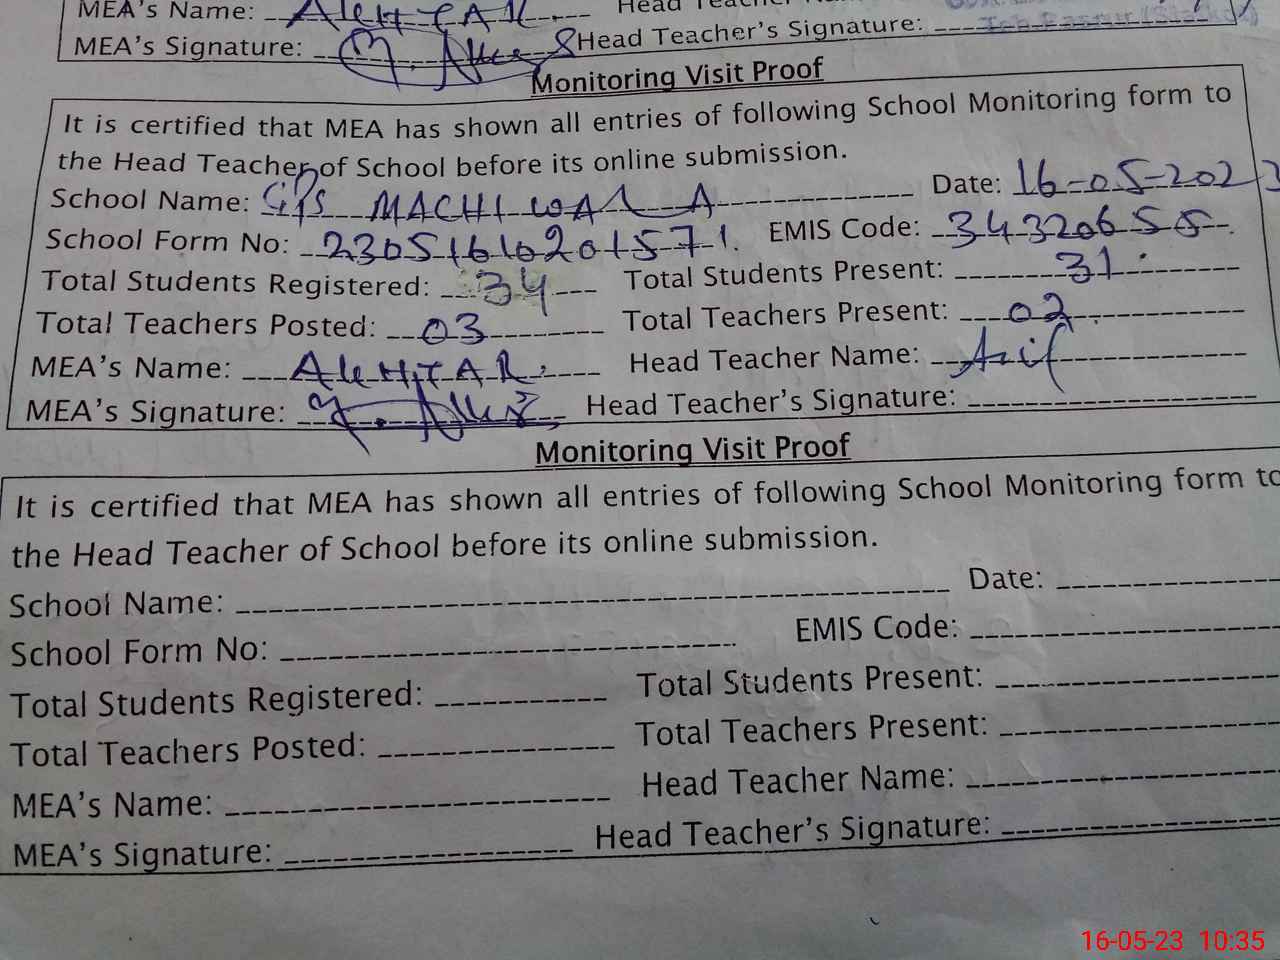 MEA's Name: AKHTAR Head Teacher Name
MEA's Signature: Head Teacher's Signature:
Monitoring Visit Proof
It is certified that MEA has shown all entries of following School Monitoring form to
the Head Teacher of School before its online submission.
School Name: GPS MACHI WALA Date: 16-05-2023
School Form No: 2305161020 1571. EMIS Code: 34320655
Total Students Registered: 34 Total Students Present: 31
Total Teachers Posted: 03 Total Teachers Present: 02
MEA's Name: AKHTAR Head Teacher Name: Asif
MEA's Signature: Head Teacher's Signature:
Monitoring Visit Proof
It is certified that MEA has shown all entries of following School Monitoring form to
the Head Teacher of School before its online submission.
School Name: Date:
School Form No: EMIS Code:
Total Students Registered: Total Students Present:
Total Teachers Posted: Total Teachers Present:
MEA's Name: Head Teacher Name:
MEA's Signature: Head Teacher's Signature:
16-05-23 10:35